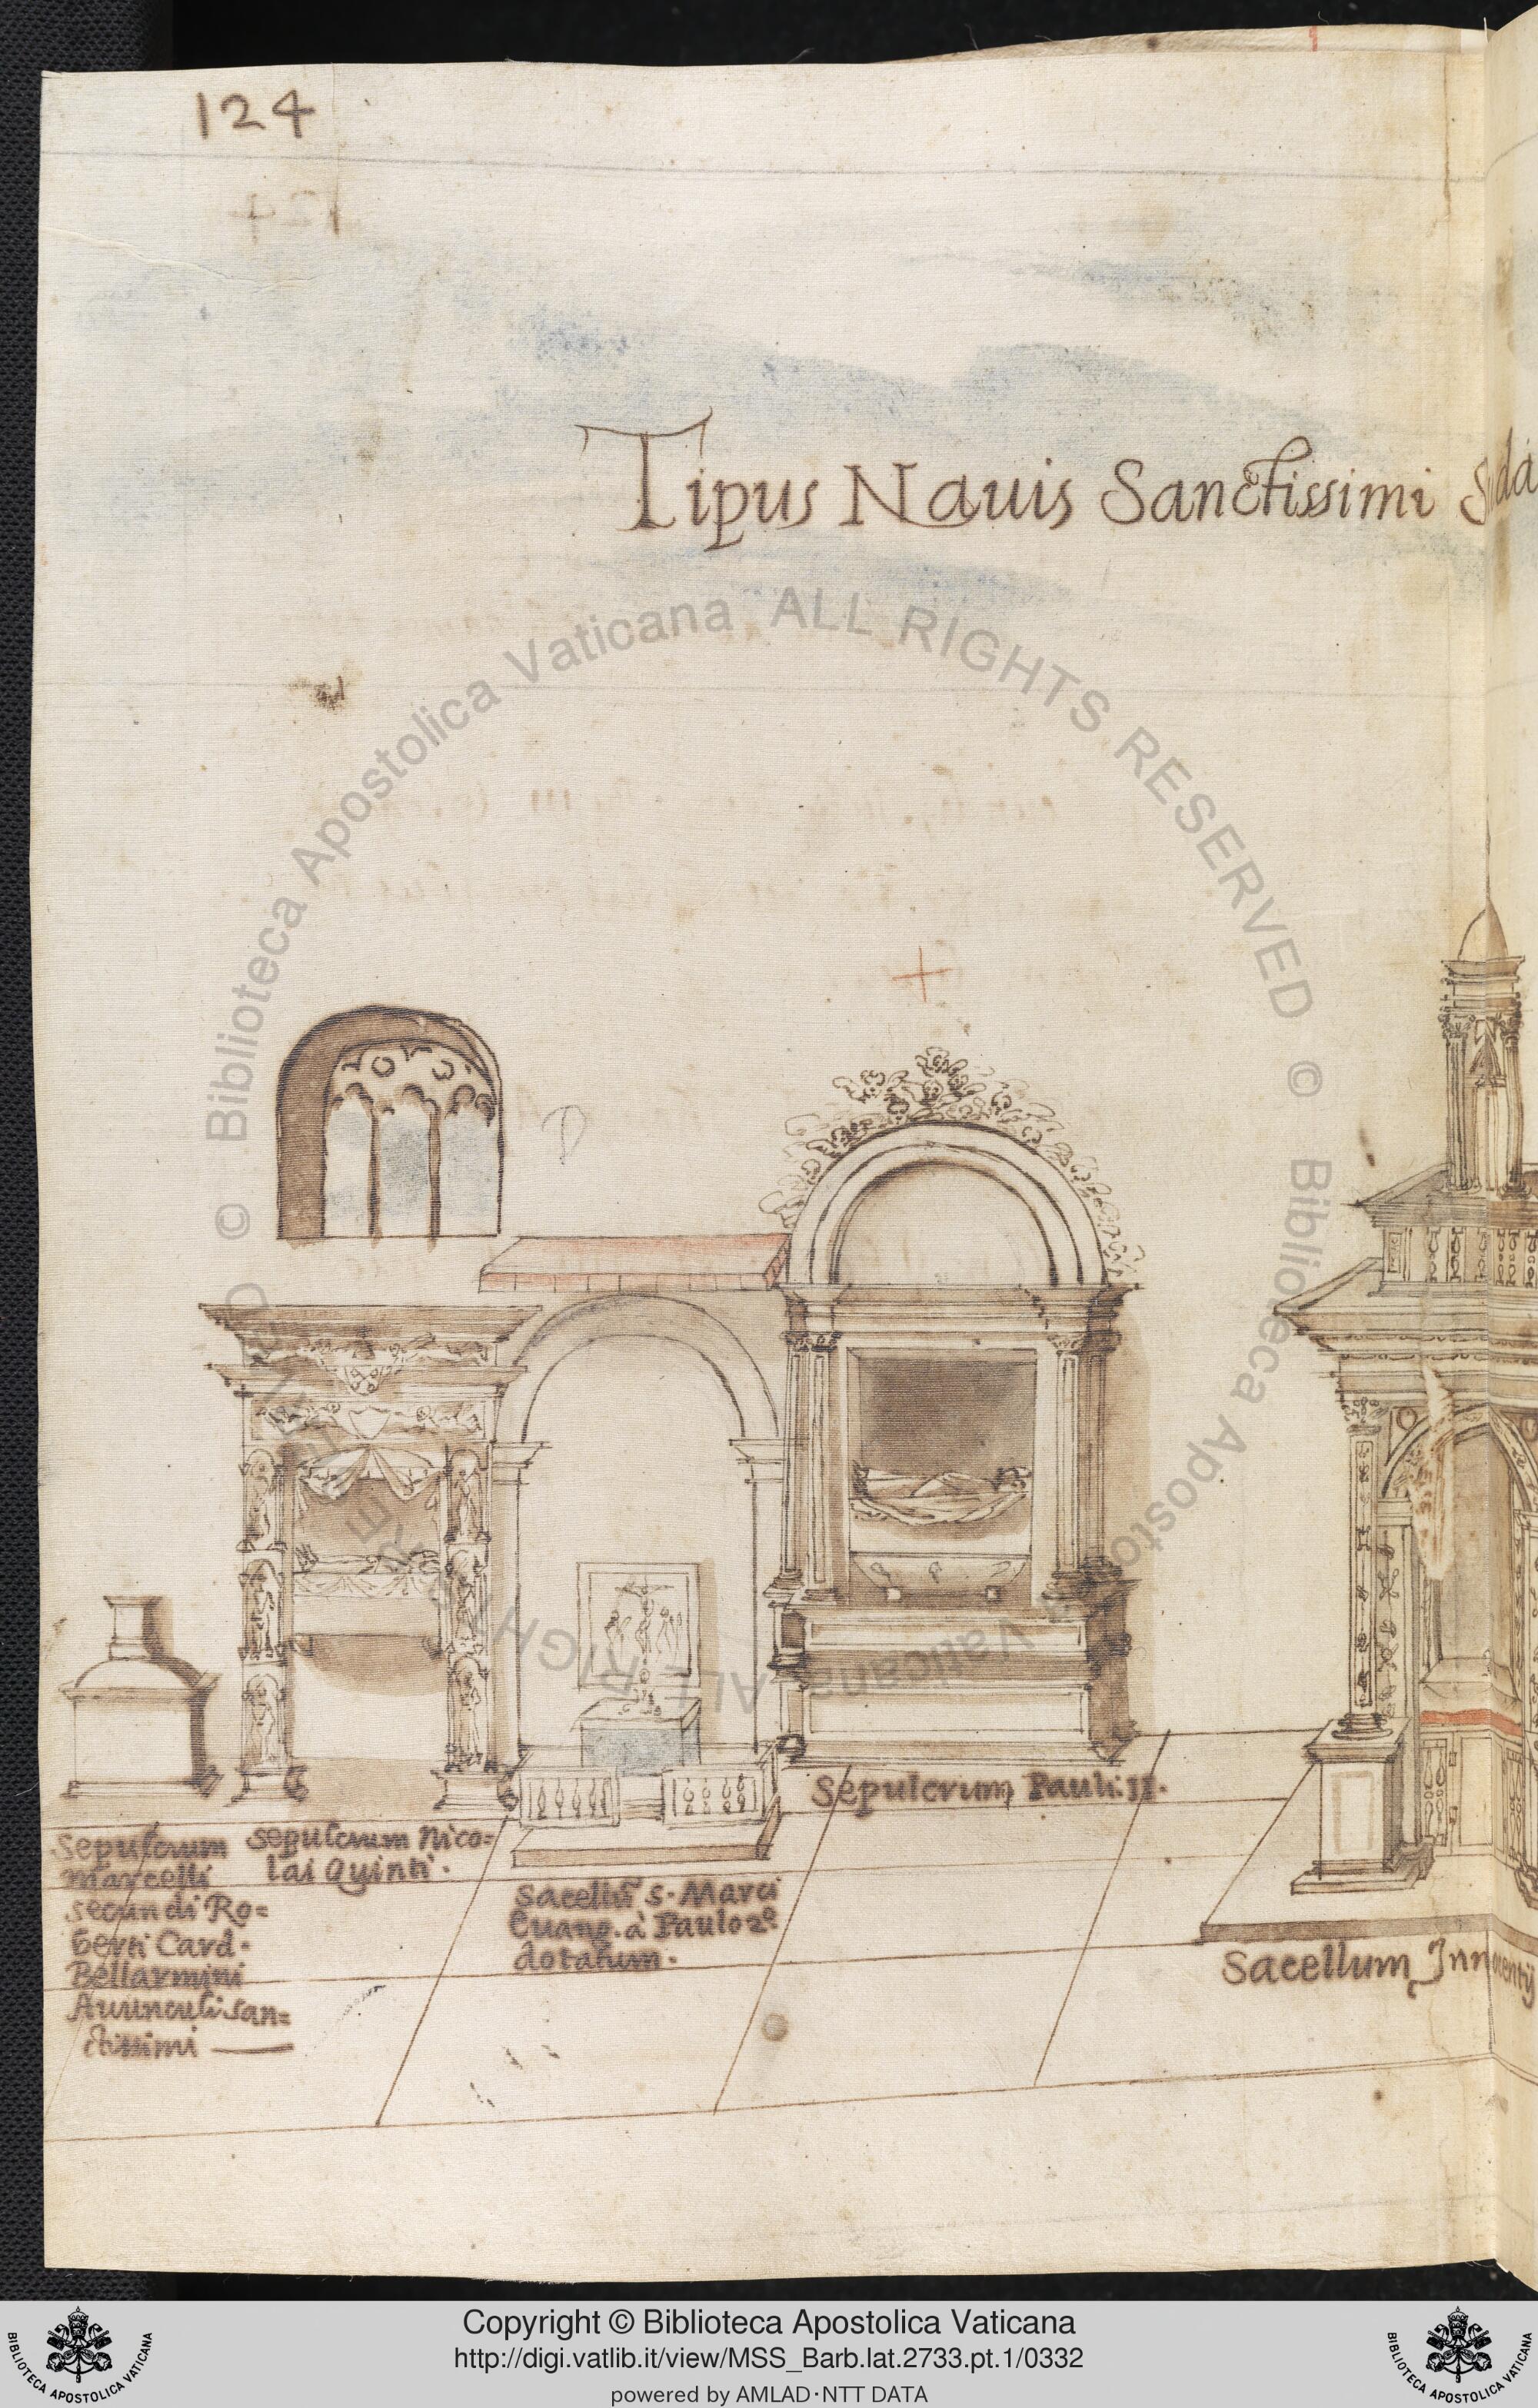 124
Tipus Nauis Sanctissimi
D
Sepulcrum
Marcelli
secundi Ro=
berti Card.
Bellarmini
Auunculi san=
ctissimi
sepulcrum Nico=
lai Quinti.
Sacellũ S. Marci
Euang. à Paulo 2º
dotatum.
Sepulcrum Pauli II.
Sacellum Innocentij
© Biblioteca Apostolica Vaticana ALL RIGHTS RESERVED © Biblioteca Apostolica Vaticana ALL RIGHTS RESERVED
BIBLIOTECA APOSTOLICA VATICANA
Copyright © Biblioteca Apostolica Vaticana
http://digi.vatlib.it/view/MSS_Barb.lat.2733.pt.1/0332
powered by AMLAD·NTT DATA
BIBLIOTECA APOSTOLICA VATICANA